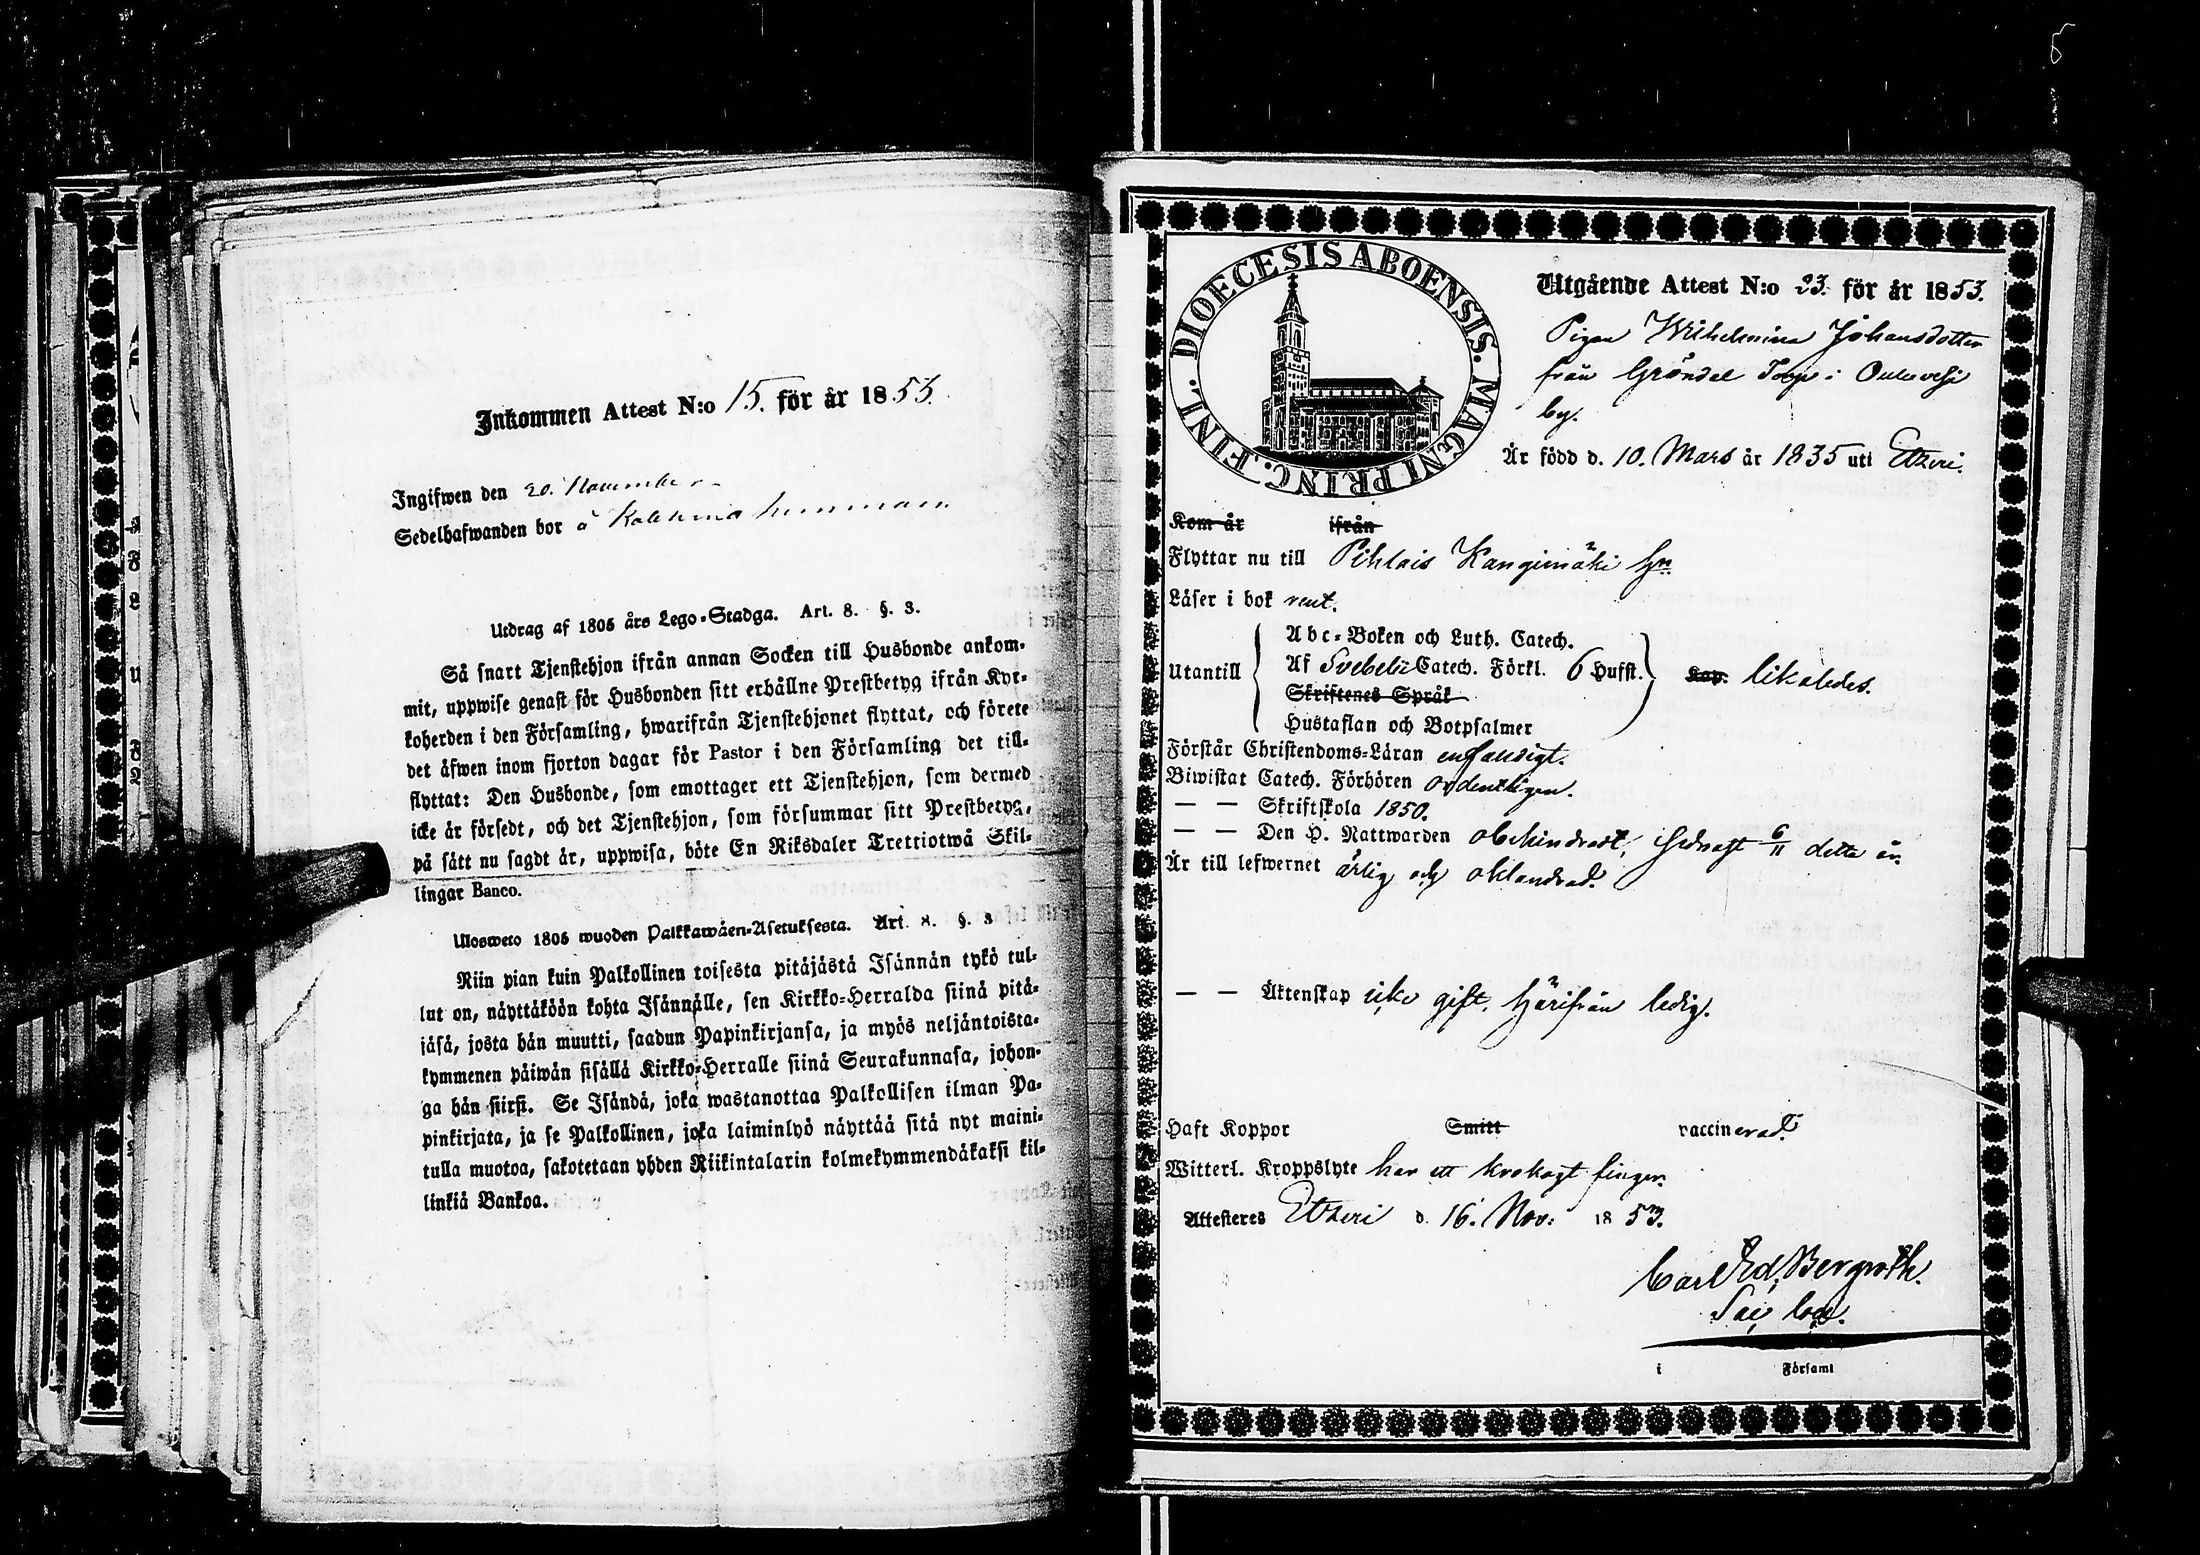 Inkommen Attest N:o 15. för år 1853.
Ingifwen den 20. November
Sedelhafwanden bor å
Utdrag af 1805 års Lego-Stadga. Art. 8. §. 3.
Så snart Tjenstehjon ifrån annan Socken till Husbonde ankom-
mit, uppwise genast för Husbonden sitt erhållne Prestbetyg ifrån Kyr-
koherden i den Församling, hwarifrån Tjenstehjonet flyttat, och förete
det äfwen inom fjorton dagar för Pastor i den Församling det till-
flyttat: Den Husbonde, som emottager ett Tjenstehjon, som dermed
icke är försedt, och det Tjenstehjon, som försummar sitt Prestbetyg,
på sätt nu sagdt är, uppwisa, böte En Riksdaler Trettiotwå Skil-
lingar Banco.
Ulosweto 1805 wuoden Palkkawäen-Asetuksesta. Art. 8. §. 3
Niin pian kuin Palkollinen toisesta pitäjästä Isännän tykö tul-
lut on, näyttäköön kohta Isännälle, sen Kirkko-Herralda siinä pitä-
jäsä, josta hän muutti, saadun Papinkirjansa, ja myös neljäntoista-
kymmenen päiwän sisällä Kirkko-Herralle siinä Seurakunnasa, johon-
ga hän siirsi. Se Isändä, joka wastanottaa Palkollisen ilman Pa-
pinkirjata, ja se Palkollinen, joka laiminlyö näyttää sitä nyt maini-
tulla muotoa, sakotetaan yhden Riikintalarin kolmekymmendäkaksi kil-
linkiä Bankoa.
5
DIOECESIS ABOENSIS. MAGNI PRINC. FINL.
Utgående Attest N:o 23. för år 1853.
Pigan Wilhelmina Johansdotter
från Gröndal Torp i
by.
Är född d. 10. Mars år 1835 uti Etzeri.
Kom år ifrån
Flyttar nu till Pihlais Kangimäki
Läser i bok rent.
Abc-Boken och Luth. Catech.
Utantill Af Svebelii Catech. Förkl. 6 Hufst. Kap. likaledes.
Skriftenes Språk
Hustaflan och Botpsalmer
Förstår Christendoms-Läran enfaldigt.
Biwistat Catech. Förhören ordentligen.
— — Skriftskola 1850.
— — Den H. Nattwarden obehindradt, sednast 6/11 detta år.
Är till lefwernet ärlig och oklandrad.
— — Äktenskap icke gift, härifrån ledig.
Haft Koppor Smitt vaccinerad.
Witterl. Kroppslyte har ett krokogt finger.
Attesteres Etzeri d. 16. Nov: 1853.
Carl Ed. Bergroth.
i Församl